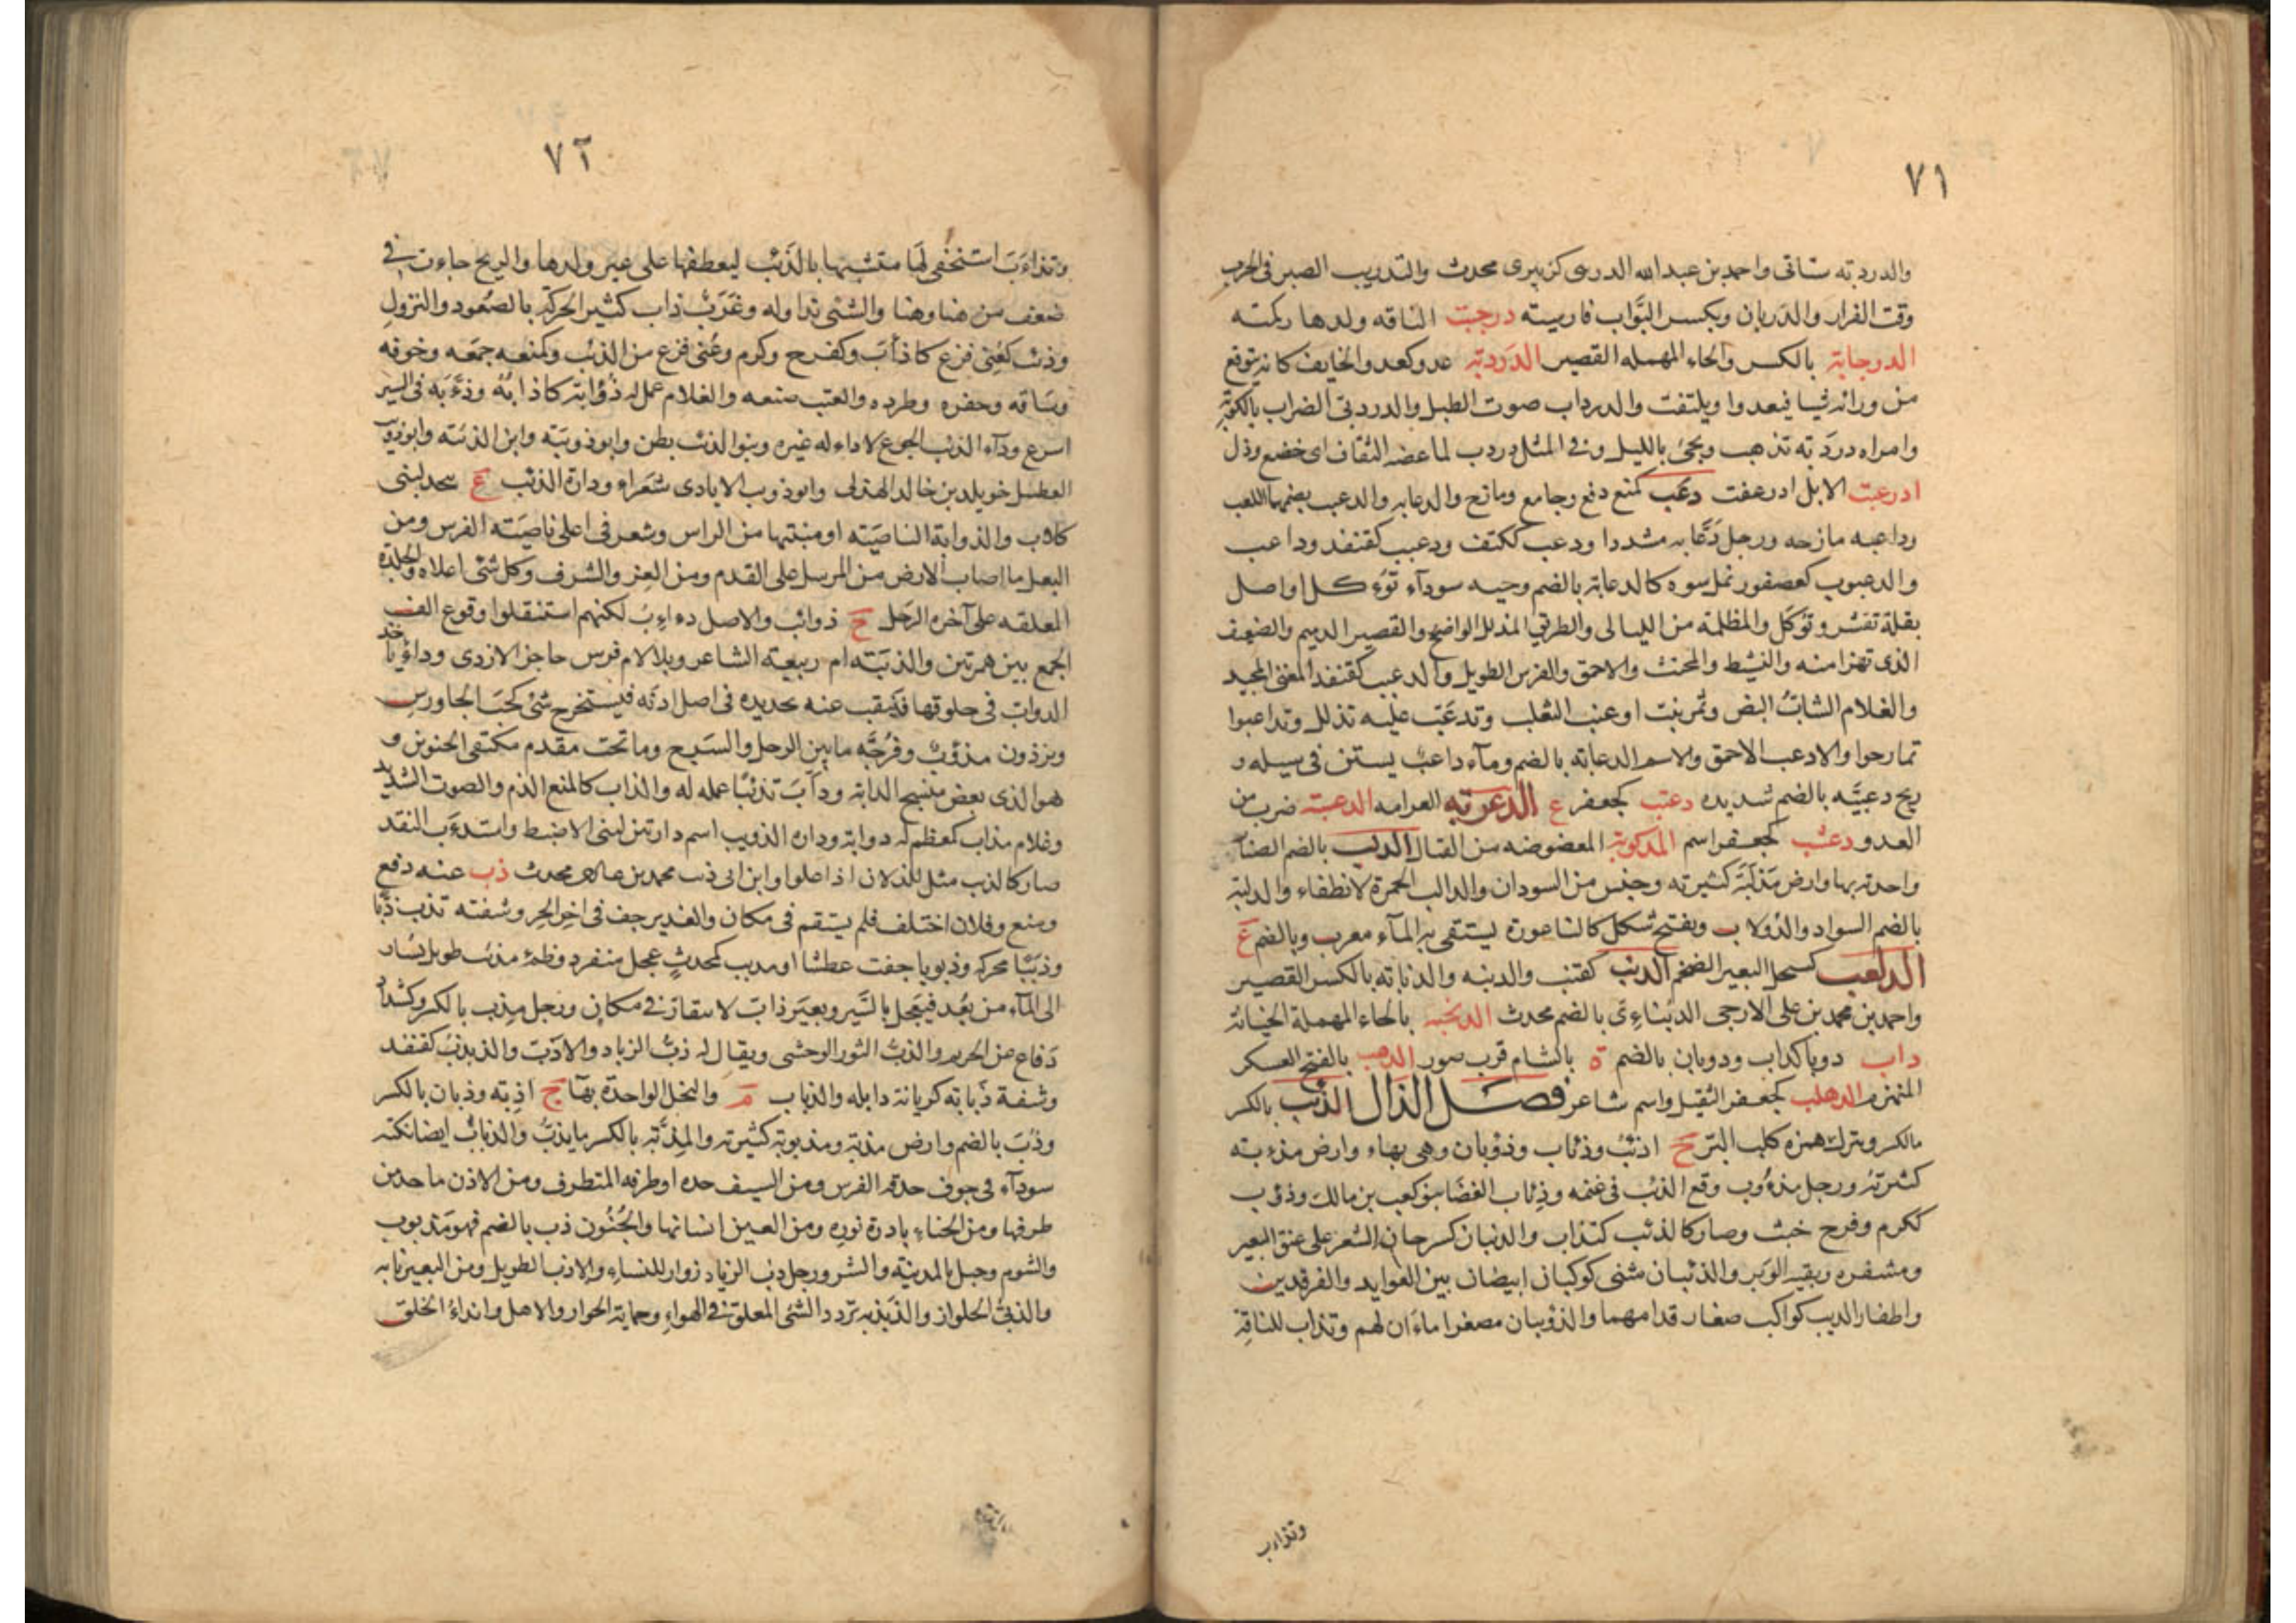 ٧١
والدردته تتاتى واحمد بن عبدالله الدربى كزبيرى محدث والتدريب الصبر فى الحرب
وقت الفرار والدربان وبكسر البواب فارسيته درجبت الناقه ولدها ركمته
الدرجابة بالكسر والحاء المهمله القصير الدردبة عدو كعدو الخايف كانه يتوقع
من ورائه شيا فيعدوا ويلتفت والدرداب صوت الطبل والدردبى الضراب بالكوبة
وامراه دردبه تذهب وبجئ بالليل وفى المثل دردب لما عضه الثقاف اى خضع وذل
ادرعبت الابل ادرعفت دعب كمنع دفع وجامع ومازح والدعابه والدعبب بضمها اللعب
وداعبه مازحه ورجل دعابه مشددا ودعب ككتف ودعبب كقنفذ وداعب
والدعبوب كعصفور نمل سوده كالدعابة بالضم وحبه سودآء توءكل او اصل
بقلة تقشر وتؤكل والمظلمة من الليالى والطريق المذلل الواضح والقصير الدميم والضعيف
الذى تهزا منه والنشيط والمخنث والاحمق والفرس الطويل والدعبب كقنفذ المغنى المجيد
والغلام الشاب البض وثمر نبت او عنب الثعلب وتدعبب عليه تذلل وتداعبوا
تمازحوا والادعب الاحمق والاسم الدعابة بالضم ومآء داعب يستن فى سيله و
ريح دعبيه بالضم شديده دعتب كجعفر ع الدعربه العرامه الدعسبة ضرب من
العدو دعشب كجعفر اسم المدكوبة المعضوضه من القتال الدلب بالضم الصنار
واحدته بها وارض مدلبة كثيرته وجنس من السودان والدالب الجمرة لا تنطفاء والدلبة
بالضم السواد والدولاب ويفتح شكل كالناعورة ليستقى به المآء معرب وبالضم ع
الدلعب كسحل البعير الضخم الدنب كقنب والدنبه والدنابه بالكسر القصير
واحمد بن محمد بن على الارجى الدنبائى بالضم محدث الدنحبه بالحاء المهملة الخيانة
داب دوبا كداب ودوبان بالضم ة بالشام قرب صور الدهب بالفتح العسكر
المنهزم الدهلب كجعفر الثقيل واسم شاعر فصل الذال الذئب بالكسر
مالكسر ويترك همزه كلب البر ج اذئب وذئاب وذؤبان وهى بهاء وارض مذءبته
كثيرته ورجل مذءوب وقع الذئب فى غنمه وذئاب الغضا بنو كعب بن مالك وذؤب
ككرم وفرح خبث وصار كالذئب كتذاب والذنبان كسرحان الشعر على عنق البعير
ومشفره وبقيه الوبر والذئبان مثنى كوكبان ابيضان بين العوايد والفرقدين
واظفار الديب كواكب صغار قدامهما والذؤيبان مصغرا ماءان لهم وتذاب للناقة
وتذاءب
٧٢
وتذاءبت استخفى لها متشبها بالذئب ليعطفها على غير ولدها والريح جاءت فى
ضعف من هنا وهنا والشئى تداوله وغرب ذاب كثير الحركة بالصعود والنزول
وذئب كعنى فزع كاذأب وكفرح وكرم وعنى فزع من الذئب وكمنعه جمعه وخوفه
وساقه وحقره وطرده والقتب صنعه والغلام عمل له ذؤابة كاذابه وذءبه فى السير
اسرع ودآء الذئب الجوع لاداء له غيره وبنو الذئب بطن وابو ذويبه وابن الذئبته وابو ذؤيب
العطيل خويلد بن خالد الهذلى وابو ذوب الايادى شعراء ودارة الذئب ع بنجد لبنى
كلاب والذوابة الناصيته او منبتها من الراس وشعر فى اعلى ناصيته الفرس ومن
النعل ما اصاب الارض من المرسل على القدم ومن العز والشرف وكل شئى اعلاه والجلدة
المعلقه على آخره الرحل ج ذوائب والاصل دءاءب لكنهم استثقلوا وقوع الف
الجمع بين همزتين والذيبته ام ربيعته الشاعر وبلا لام فرس حاجز الازدى وداء ياخذ
الدواب فى حلوقها فينقب عنه بحديده فى اصل اذنه فيستخرج شئى كحب الجاورس
وبرذون مذؤب وفرجه ما بين الرحل والسرج وما تحت مقدم ملتقى الحنوين و
هو الذى يعض منسج الدابة وذأب تذئبا عمله له والذاب كالمنع الذم والصوت الشديد
وغلام مذاب كمعظم له دوابة وداره الذويب اسم دارتين لبنى الاضبط واستذءب النقد
صار كالذئب مثل للذلان اذا علوا وابن ابى ذئب محمد بن محدث ذب عنه دفع
ومنع وفلان اختلف فلم يستقم فى مكان والغدير جف فى اخر الحر وشفته تذب ذبا
وذببا محركه وذبوبا جفت عطشا او مدبب كمحدث عجل منفرد وظمء مذبب طويل يسار
الى المآء من بعد فيعجل بالسير وبعير ذاب لا يتقار فى مكان ورجل مذب بالكسر وكشداد
دفاع عن الحريم والذب الثور الوحشى ويقال له ذب الرباد والاذب والذبذب كقنفذ
وشفة ذبابه كريانة دابله والذباب م والنخل الواحدة بهآ ج اذبه وذبان بالكسر
وذب بالضم وارض مذبة ومذبوبة كثيرته والمذبة بالكسر ما يذب والذباب ايضا نكته
سودآء فى جوف حدقة الفرس ومن السيف حده او طرفه المتطرف ومن الاذن ما حد من
طرفها ومن الحناء بادرة نوره ومن العين انسانها والجنون ذب بالضم فهو مذبوب
والشوم وجبل بالمدينه والشر ورجل ذب الرياد زوار للنساء والاذب الطويل ومن البعير نابه
والذبى الجلواز والذبذبه تردد الشئى المعلق فى الهواء وحماية الجوار والاهل وانداء الخلق